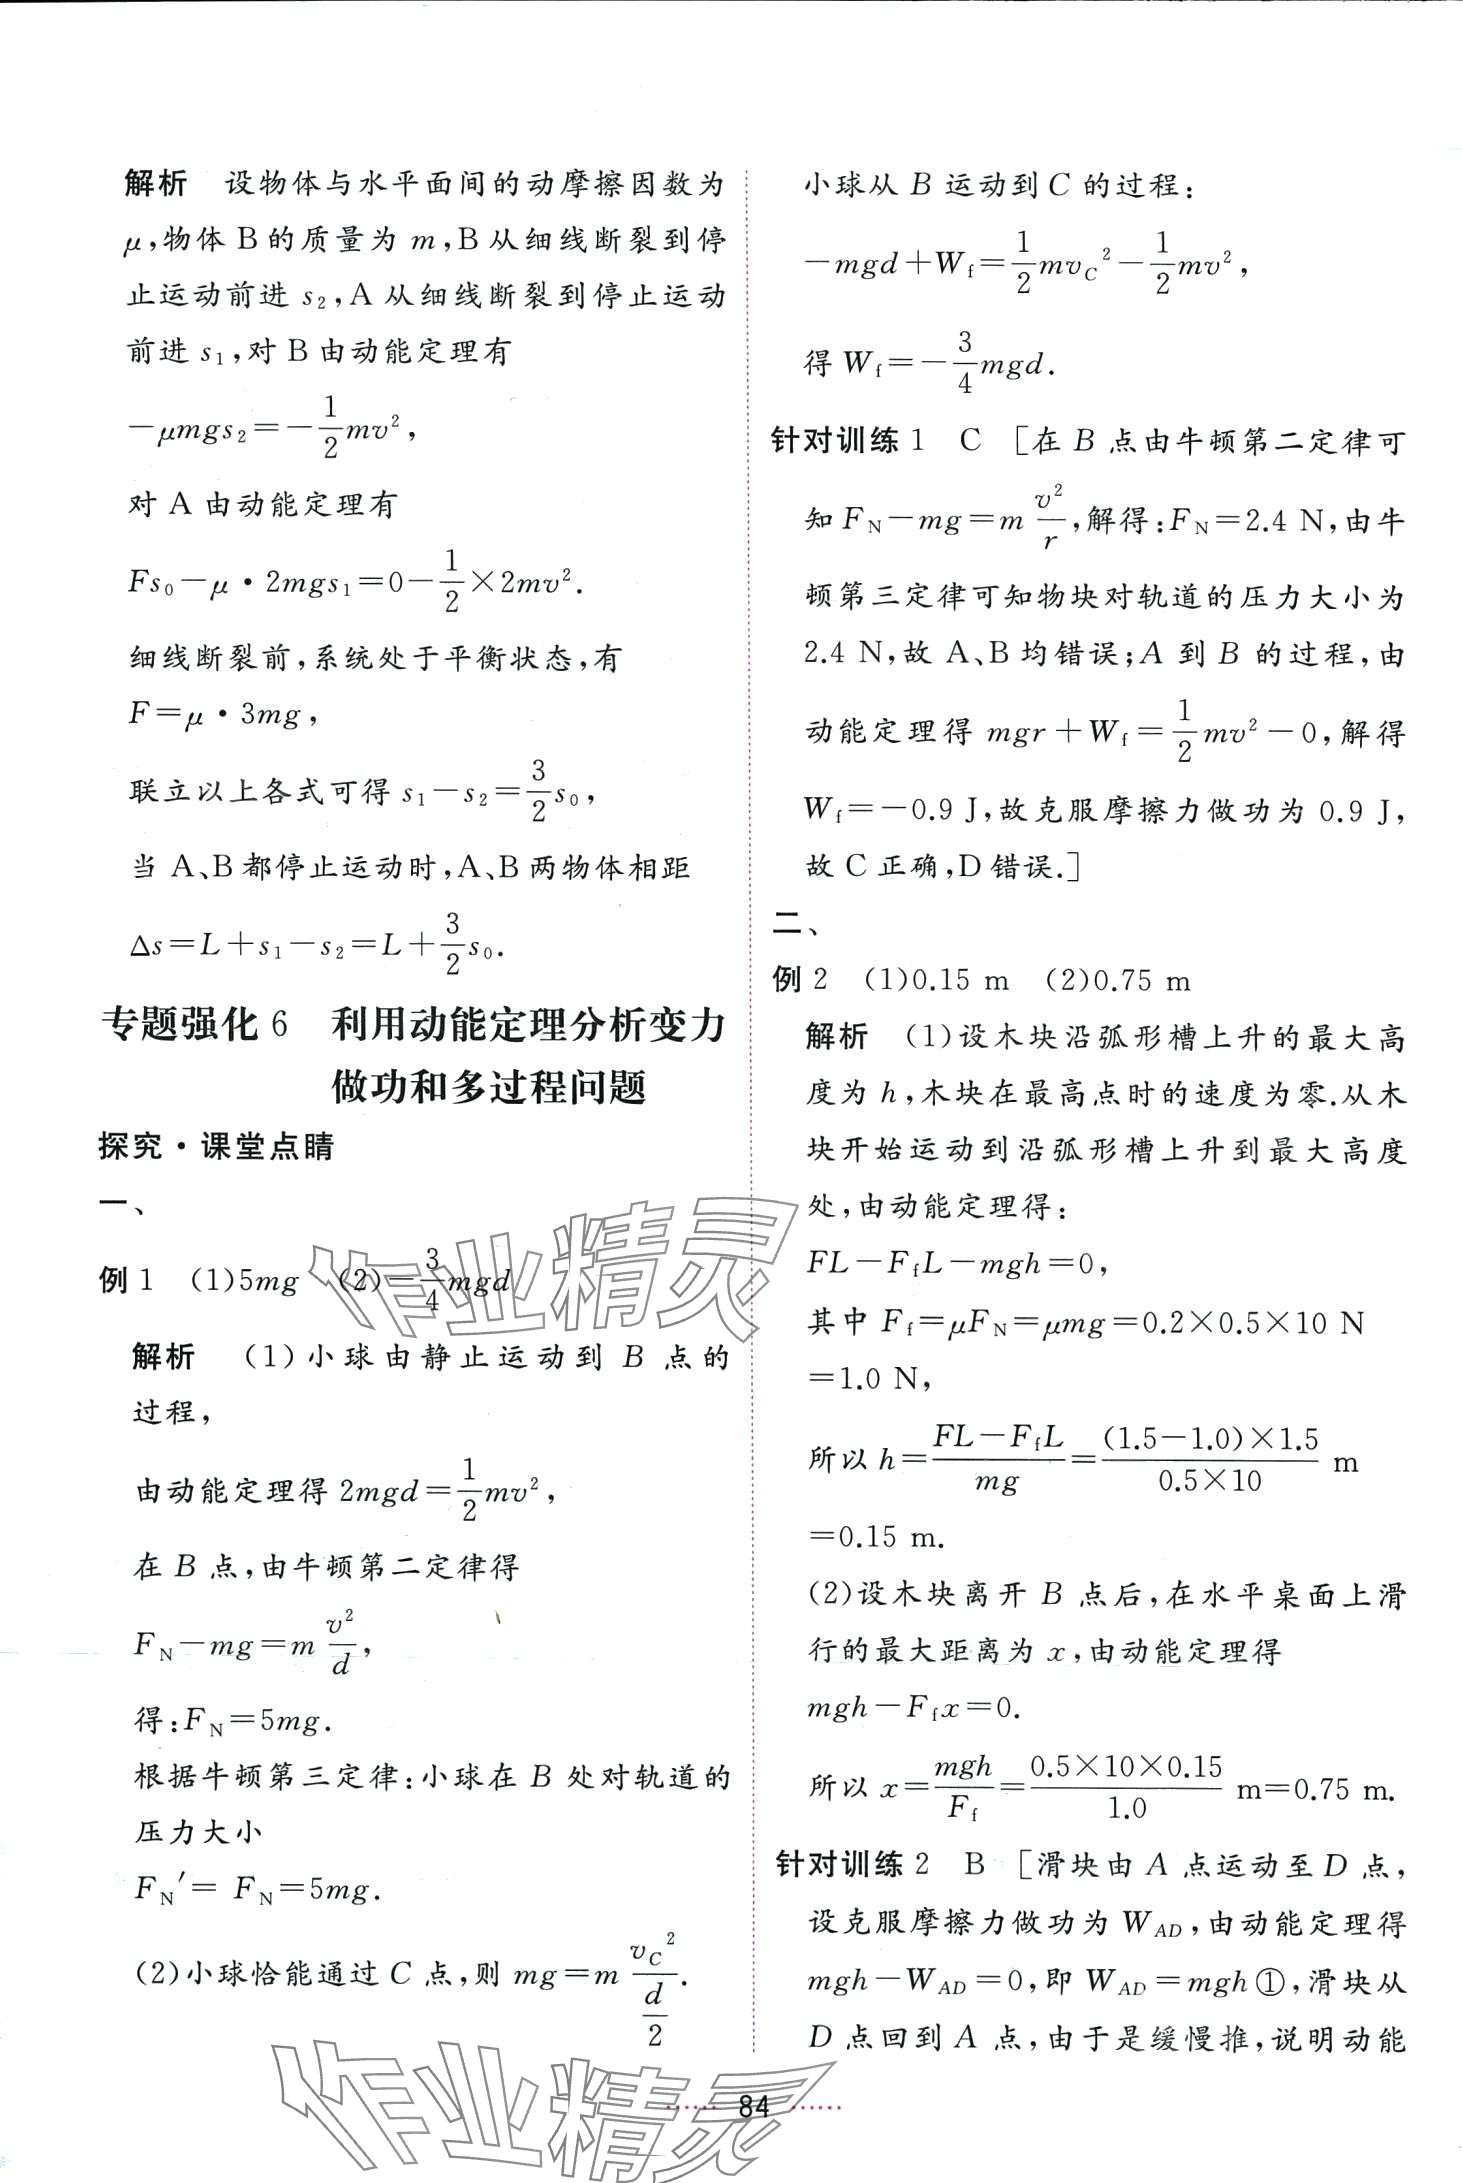 解析　设物体与水平面间的动摩擦因数为
μ,物体 B 的质量为 m,B 从细线断裂到停
止运动前进 s₂,A 从细线断裂到停止运动
前进 s₁,对 B 由动能定理有
−μmgs₂=−\frac{1}{2}mv²,
对 A 由动能定理有
Fs₀−μ·2mgs₁=0−\frac{1}{2}×2mv².
细线断裂前,系统处于平衡状态,有
F=μ·3mg,
联立以上各式可得 s₁−s₂=\frac{3}{2}s₀,
当 A、B 都停止运动时,A、B 两物体相距
Δs=L+s₁−s₂=L+\frac{3}{2}s₀.
专题强化 6　利用动能定理分析变力
做功和多过程问题
探究·课堂点睛
一、
例 1　(1)5mg　(2)−\frac{3}{4}mgd
解析　(1)小球由静止运动到 B 点的
过程,
由动能定理得 2mgd=\frac{1}{2}mv²,
在 B 点,由牛顿第二定律得
F_N−mg=m\frac{v²}{d},
得:F_N=5mg.
根据牛顿第三定律:小球在 B 处对轨道的
压力大小
F_N′= F_N=5mg.
(2)小球恰能通过 C 点,则 mg=m\frac{v_C²}{\frac{d}{2}}.
小球从 B 运动到 C 的过程:
−mgd+W_f=\frac{1}{2}mv_C²−\frac{1}{2}mv²,
得 W_f=−\frac{3}{4}mgd.
针对训练 1　C　[在 B 点由牛顿第二定律可
知 F_N−mg=m\frac{v²}{r},解得:F_N=2.4 N,由牛
顿第三定律可知物块对轨道的压力大小为
2.4 N,故 A、B 均错误;A 到 B 的过程,由
动能定理得 mgr+W_f=\frac{1}{2}mv²−0,解得
W_f=−0.9 J,故克服摩擦力做功为 0.9 J,
故 C 正确,D 错误.]
二、
例 2　(1)0.15 m　(2)0.75 m
解析　(1)设木块沿弧形槽上升的最大高
度为 h,木块在最高点时的速度为零.从木
块开始运动到沿弧形槽上升到最大高度
处,由动能定理得:
FL−F_fL−mgh=0,
其中 F_f=μF_N=μmg=0.2×0.5×10 N
=1.0 N,
所以 h=\frac{FL−F_fL}{mg}=\frac{(1.5−1.0)×1.5}{0.5×10} m
=0.15 m.
(2)设木块离开 B 点后,在水平桌面上滑
行的最大距离为 x,由动能定理得
mgh−F_fx=0.
所以 x=\frac{mgh}{F_f}=\frac{0.5×10×0.15}{1.0} m=0.75 m.
针对训练 2　B　[滑块由 A 点运动至 D 点,
设克服摩擦力做功为 W_{AD},由动能定理得
mgh−W_{AD}=0,即 W_{AD}=mgh①,滑块从
D 点回到 A 点,由于是缓慢推,说明动能
84
作业精灵
作业精灵